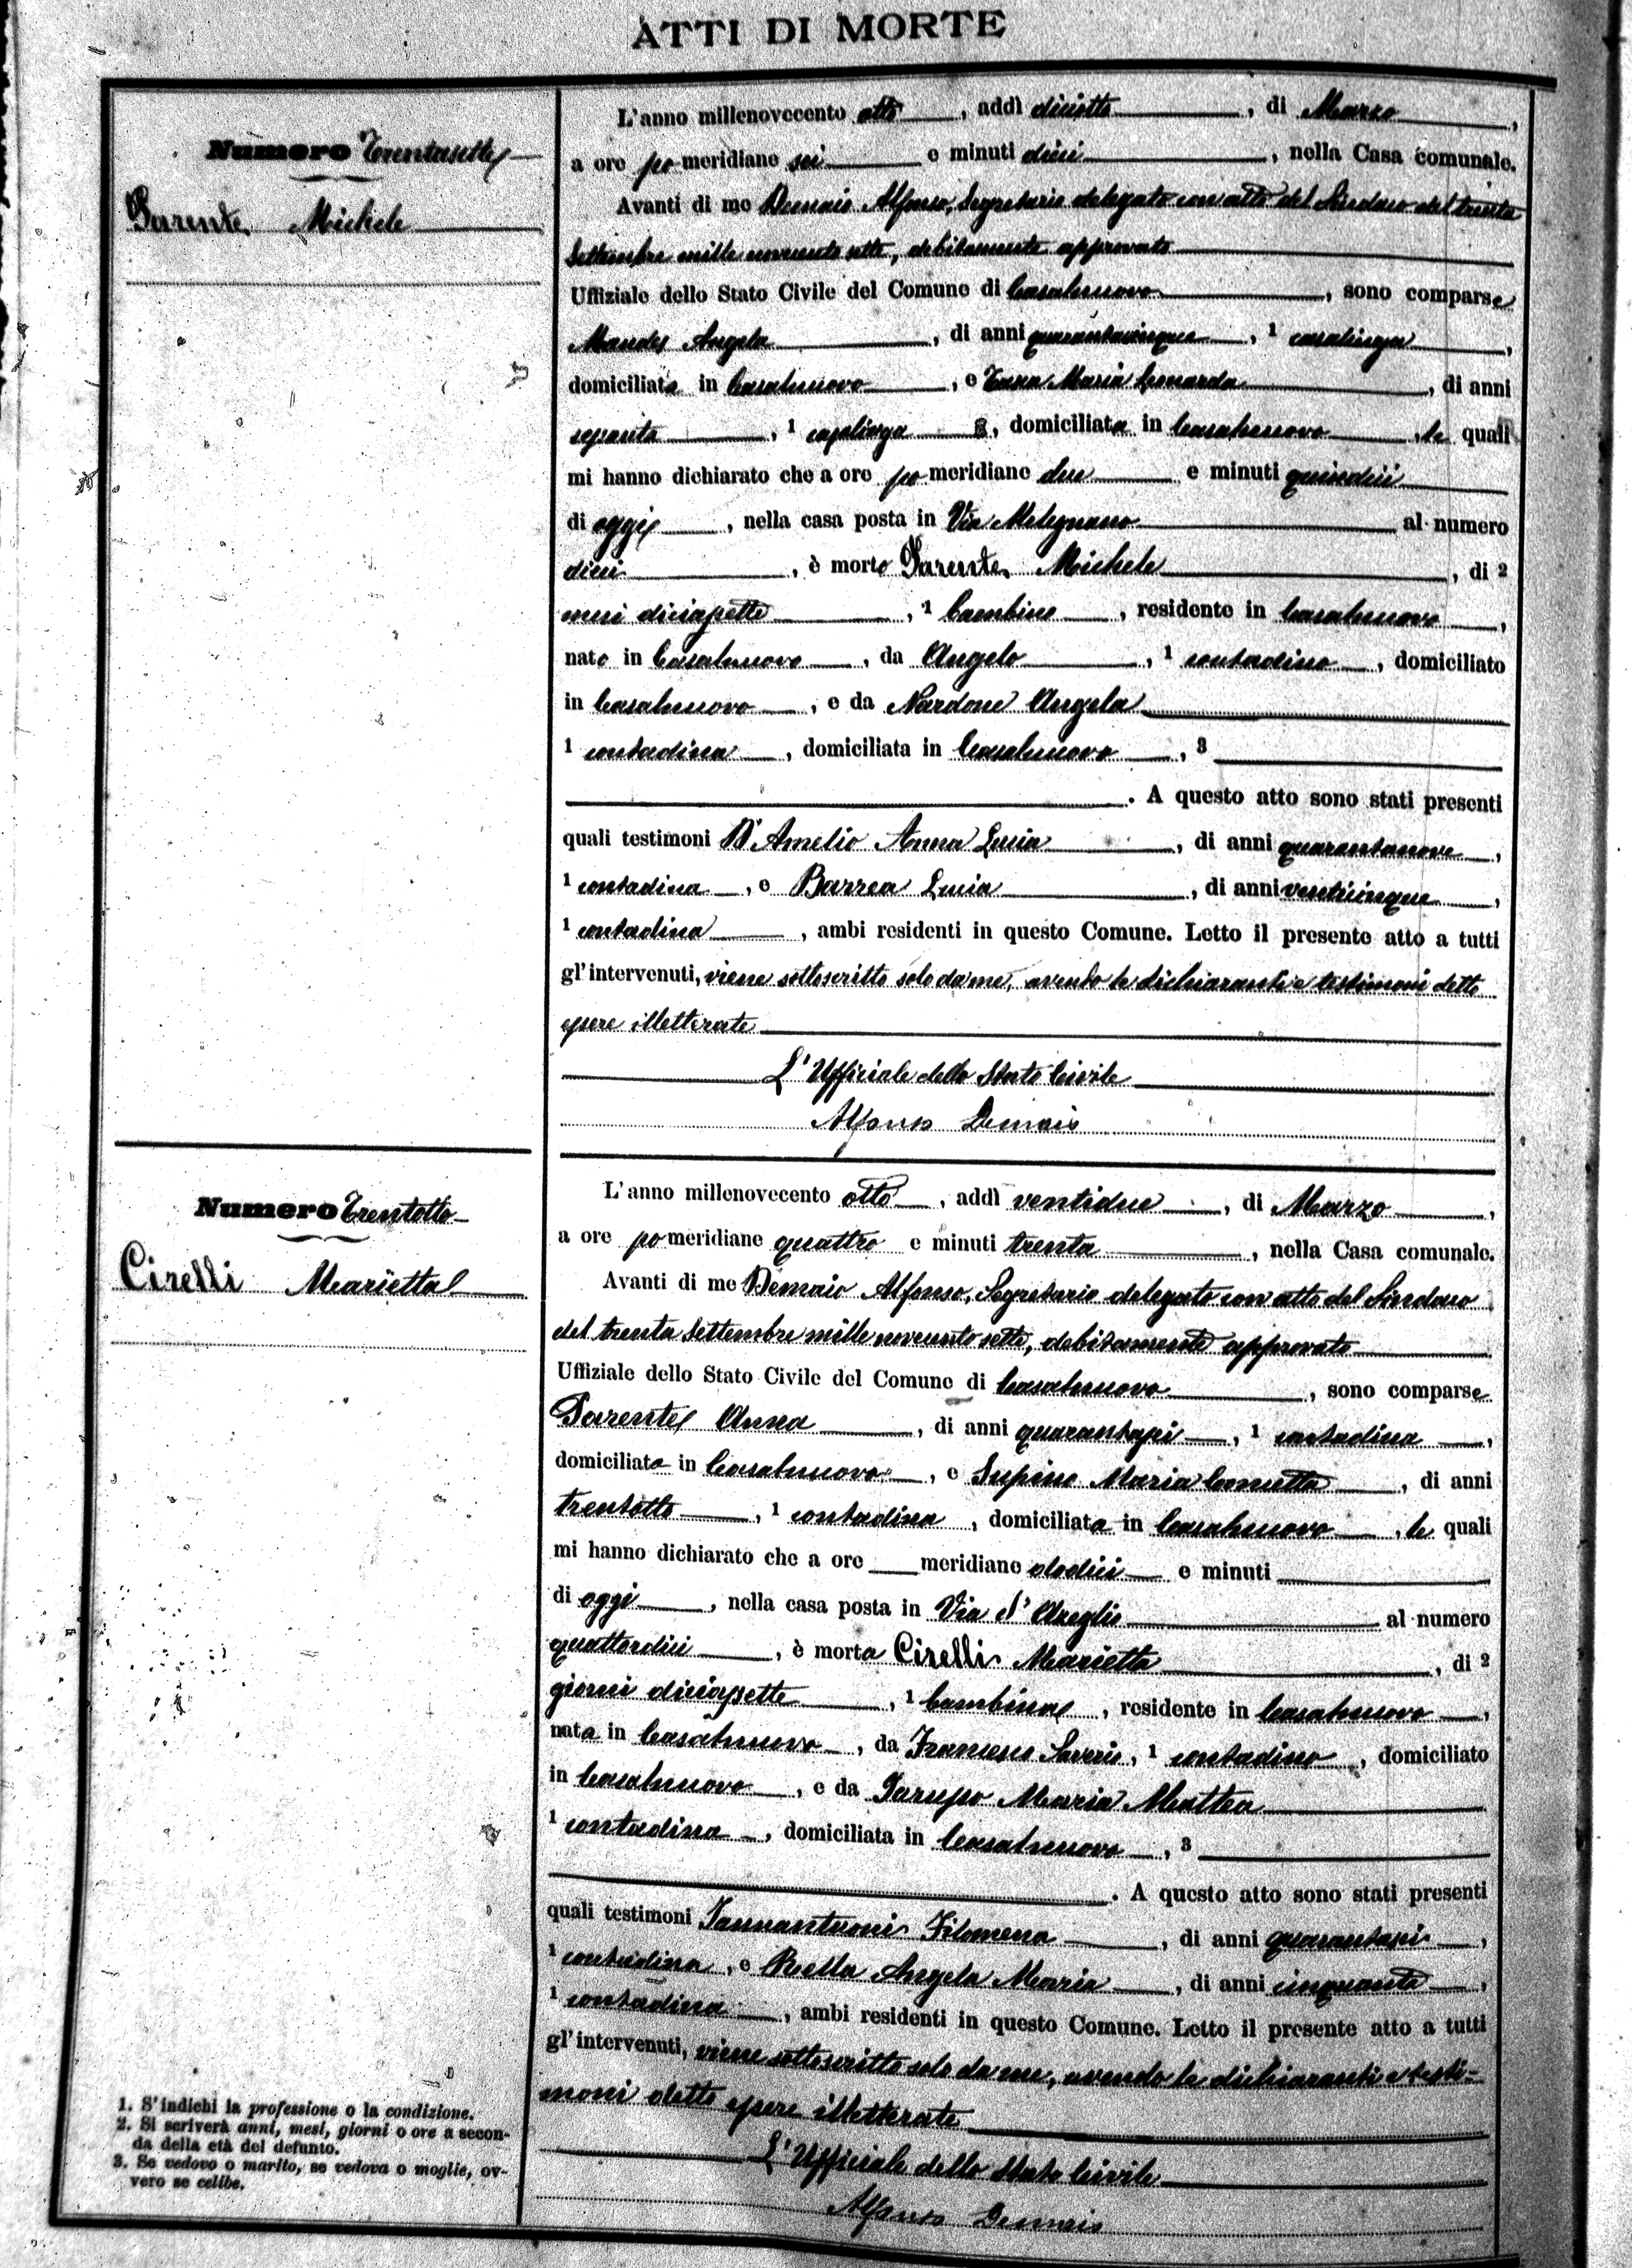 ATTI DI MORTE
Numero Trentasette
Parente Michele
L'anno millenovecento otto, addì diciotto, di Marzo,
a ore pomeridiane sei e minuti dieci, nella Casa comunale.
Avanti di me Demaio Alfonso, Segretario delegato con atto del Sindaco del trenta
Settembre mille novecento sette, debitamente approvato
Uffiziale dello Stato Civile del Comune di Casalnuovo, sono comparse
Angela, di anni quarantacinque, 1 casalinga,
domiciliata in Casalnuovo, e Maria Leonarda, di anni
sessanta, 1 casalinga, domiciliata in Casalnuovo, le quali
mi hanno dichiarato che a ore pomeridiane due e minuti quindici
di oggi, nella casa posta in Via Melegnano al numero
dieci, è morto Parente Michele, di 2
mesi diciassette, 1 bambino, residente in Casalnuovo,
nato in Casalnuovo, da Angelo, 1 contadino, domiciliato
in Casalnuovo, e da Nardone Angela
1 contadina, domiciliata in Casalnuovo, 3
. A questo atto sono stati presenti
quali testimoni D'Amelio Anna Lucia, di anni quarantanove,
1 contadina, e Barrea Lucia, di anni venticinque,
1 contadina, ambi residenti in questo Comune. Letto il presente atto a tutti
gl'intervenuti, viene sottoscritto solo da me, avendo le dichiaranti e testimoni detto
essere illetterate
L'Ufficiale dello Stato Civile
Alfonso Demaio
Numero Trentotto
Cirelli Marietta
L'anno millenovecento otto, addì ventidue, di Marzo,
a ore pomeridiane quattro e minuti trenta, nella Casa comunale.
Avanti di me Demaio Alfonso, Segretario delegato con atto del Sindaco
del trenta Settembre mille novecento sette, debitamente approvato
Uffiziale dello Stato Civile del Comune di Casalnuovo, sono comparse
Parente Anna, di anni quarantasei, 1 contadina,
domiciliata in Casalnuovo, e Supino Maria Concetta, di anni
trentotto, 1 contadina, domiciliata in Casalnuovo, le quali
mi hanno dichiarato che a ore meridiane dodici e minuti
di oggi, nella casa posta in Via d'Azeglio al numero
quattordici, è morta Cirelli Marietta, di 2
giorni diciassette, 1 bambina, residente in Casalnuovo,
nata in Casalnuovo, da Francesco Saverio, 1 contadino, domiciliato
in Casalnuovo, e da Maria Mattea
1 contadina, domiciliata in Casalnuovo, 3
. A questo atto sono stati presenti
quali testimoni Iannantuoni Filomena, di anni quarantasei,
1 contadina, e Angela Maria, di anni cinquanta,
1 contadina, ambi residenti in questo Comune. Letto il presente atto a tutti
gl'intervenuti, viene sottoscritto solo da me, avendo le dichiaranti e testi-
moni detto essere illetterate
L'Ufficiale dello Stato Civile
Alfonso Demaio
1. S'indichi la professione o la condizione.
2. Si scriverà anni, mesi, giorni o ore a secon-
da della età del defunto.
3. Se vedovo o marito, se vedova o moglie, ov-
vero se celibe.